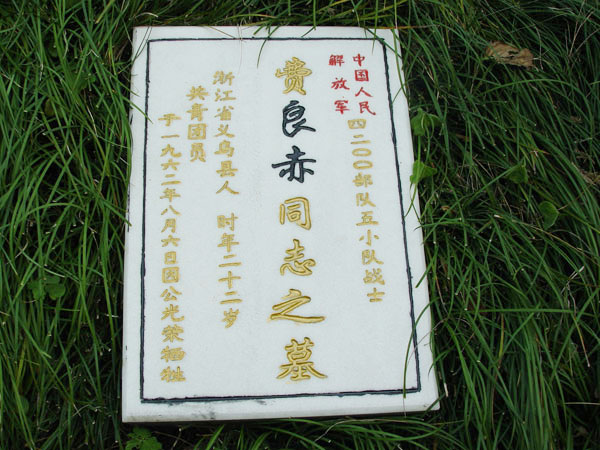 中国人民
解放军
四二〇〇部队五小队战士
费良赤同志之墓
浙江省义乌县人 时年二十二岁
共青团员
于一九六二年八月六日因公光荣牺牲